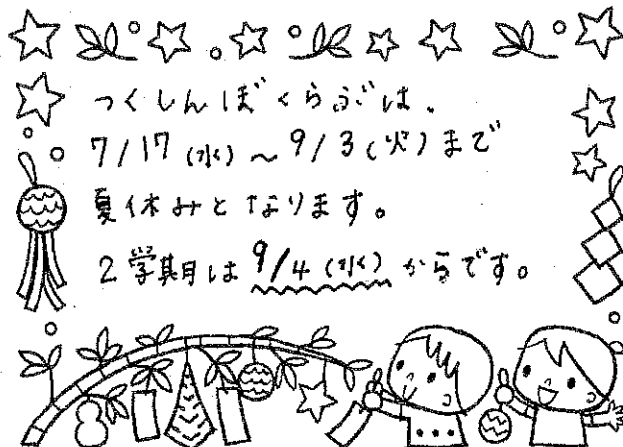 つくしんぼくらぶは、
7/17(水)～9/3(火)まで
夏休みとなります。
2学期は9/4(水)からです。